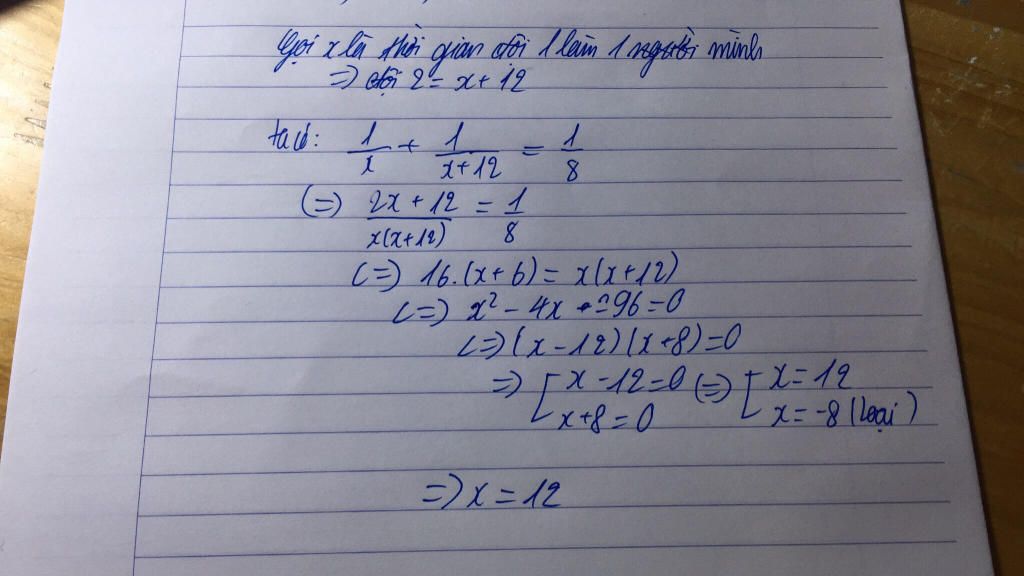 Gọi x là thời gian đội 1 làm 1 mình
=> đội 2 = x + 12
ta có: 1/x + 1/(x+12) = 1/8
(=) (2x + 12)/(x(x+12)) = 1/8
(=) 16.(x + 6) = x(x+12)
(=) x² - 4x - 96 = 0
(=) (x - 12)(x + 8) = 0
=> [ x - 12 = 0 (=) [ x = 12
x + 8 = 0 x = -8 (loại)
=> x = 12